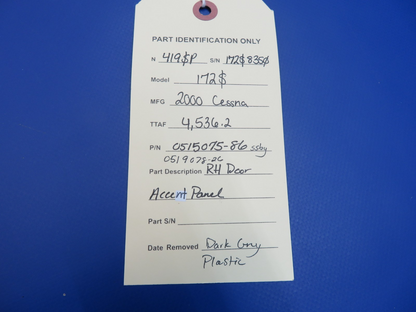 PART IDENTIFICATION ONLY
N 419SP S/N 172S8350
Model 172S
MFG 2000 Cessna
TTAF 4,536.2
P/N 0515075-86 ssby
0519078-26
Part Description RH Door
Accent Panel
Part S/N
Date Removed Dark Gray
Plastic